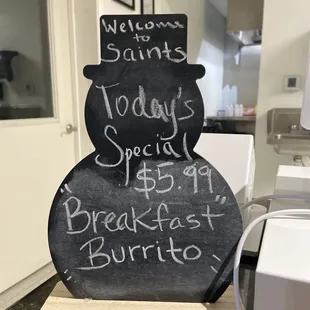 Welcome
to
Saints
Today's
Special
$5.99
"Breakfast"
Burrito